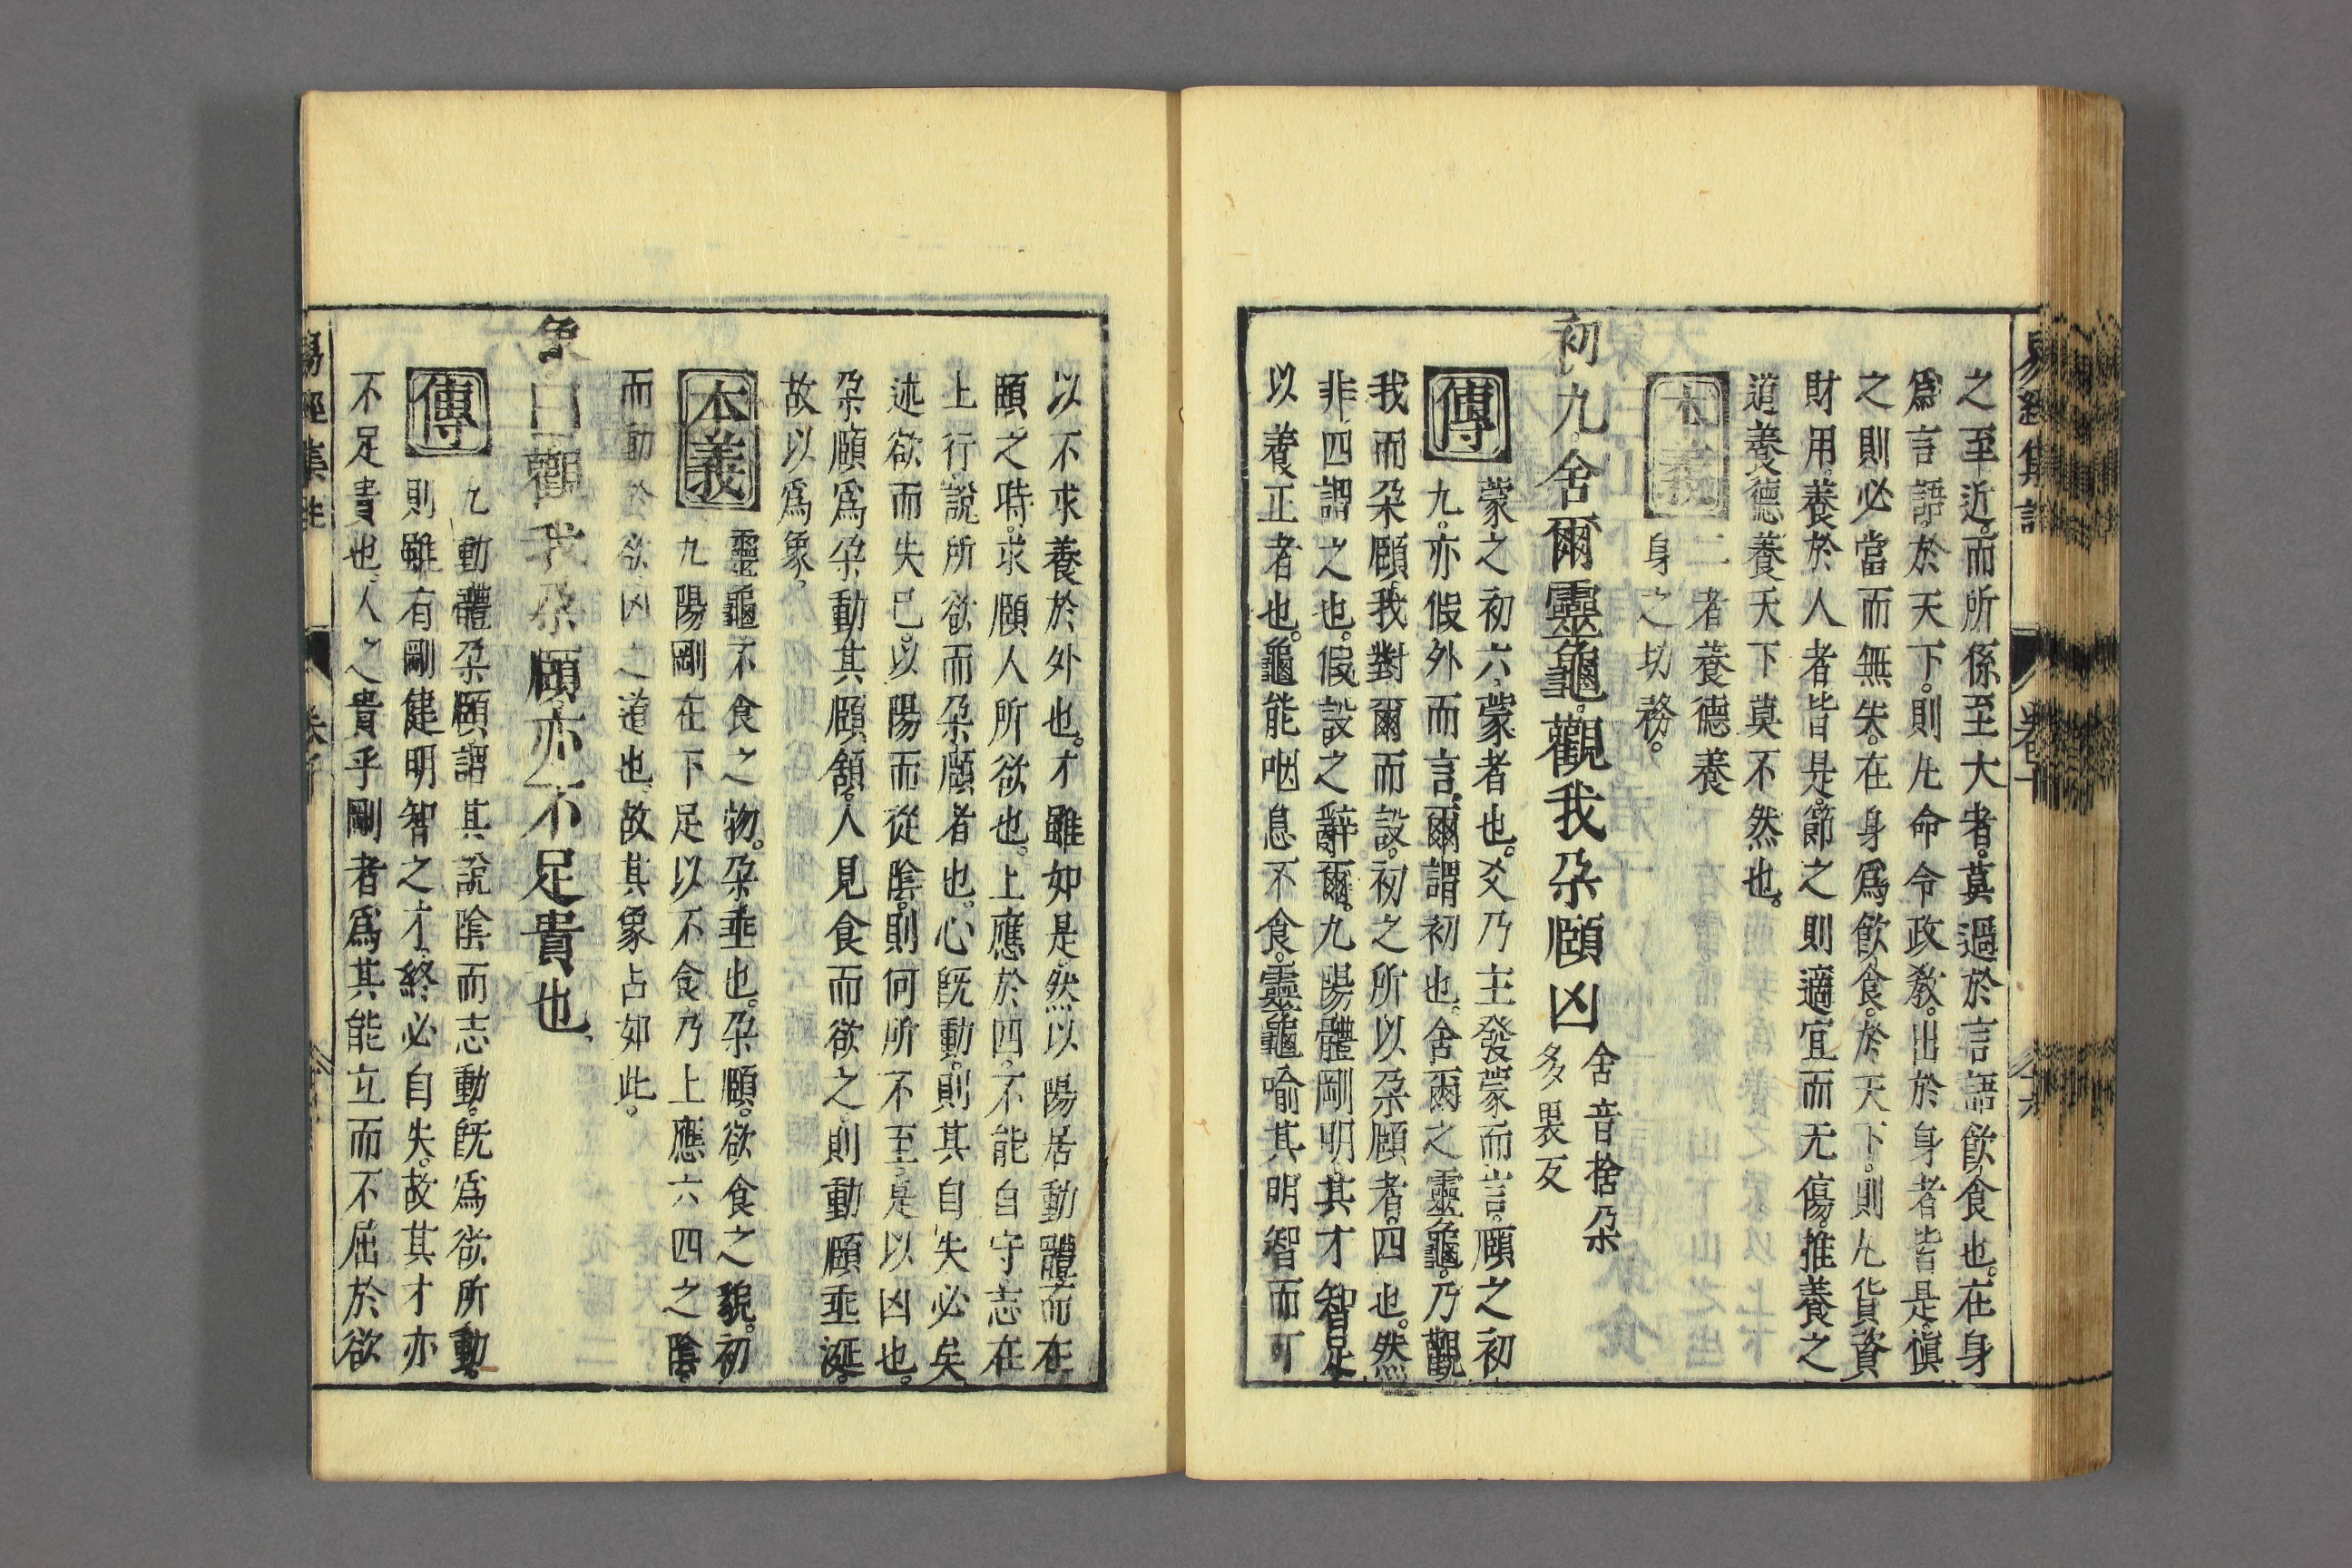 之至近。而所係至大者。莫過於言語飲食也。在身
爲言語。於天下。則凢命令政敎。出於身者皆是。愼
之則必當而無失。在身爲飲食。於天下。則凢貨資
財用。養於人者皆是。節之則適宜而无傷。推養之
道。養德養天下莫不然也。
本義
二者養德養
身之切務。
初九。舍爾靈龜。觀我朵頤凶
舍音捨朵
多畏反
傳
蒙之初六。蒙者也。爻乃主發蒙而言。頤之初
九。亦假外而言。爾謂初也。舍爾之靈龜。乃觀
我而朵頤。我對爾而設。初之所以朵頤者。四也。然
非四謂之也。假設之辭爾。九陽體剛明。其才智足
以養正者也。龜能咽息不食。靈龜喻其明智而可
以不求養於外也。才雖如是。然以陽居動體。而在
頤之時。求頤人所欲也。上應於四。不能自守志在
上行。說所欲而朵頤者也。心旣動。則其自失必矣
迷欲而失已。以陽而從陰。則何所不至。是以凶也。
朵頤爲朵動其頤頷。人見食而欲之。則動頤垂涎。
故以爲象。
本義
靈龜不食之物。朵垂也。朵頤。欲食之貌。初
九陽剛在下。足以不食。乃上應六四之陰。
而動於欲凶之道也。故其象占如此。
象曰觀我朵頤。亦不足貴也。
傳
九動體。朵頤謂其說陰而志動。旣爲欲所動。
則雖有剛健明智之才。終必自失。故其才亦
不足貴也。人之貴乎剛者。爲其能立而不屈於欲
易經集註